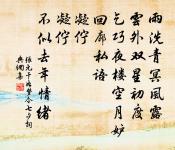 雨洗青冥風露
雲外双星初度
乞巧夜楼空月妒
回廊私語
凝佇
凝佇
不似去年情緒
張元干如夢令七夕詞
典網集